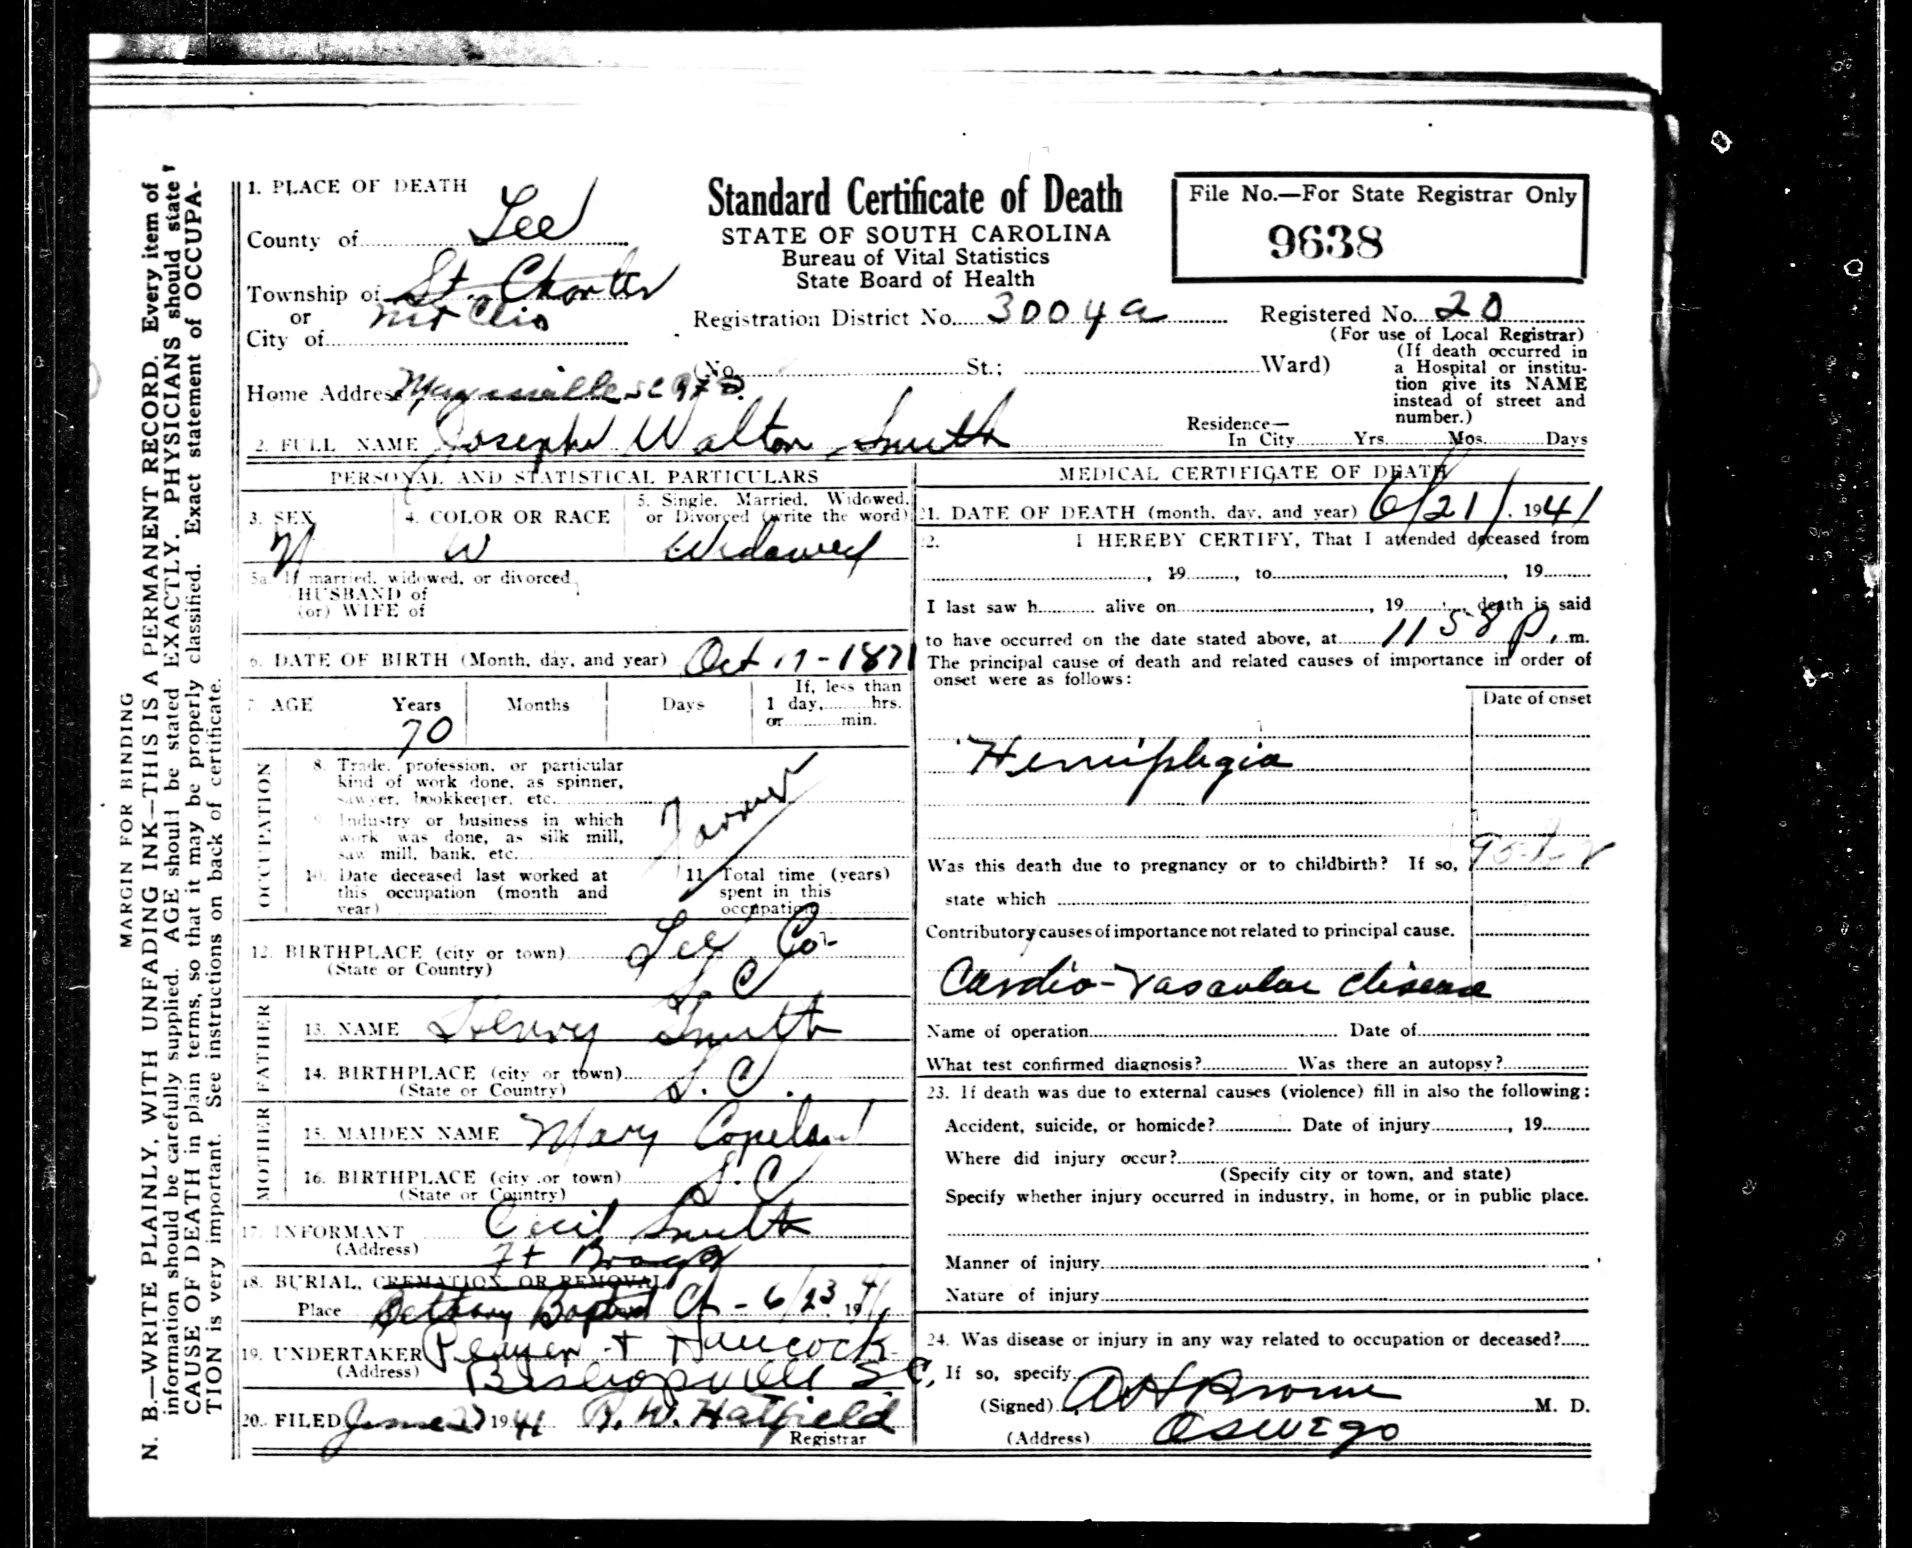 MARGIN FOR BINDING
N. B.—WRITE PLAINLY, WITH UNFADING INK—THIS IS A PERMANENT RECORD. Every item of
information should be carefully supplied. AGE should be stated EXACTLY. PHYSICIANS should state
CAUSE OF DEATH in plain terms, so that it may be properly classified. Exact statement of OCCUPA-
TION is very important. See instructions on back of certificate.
Standard Certificate of Death
STATE OF SOUTH CAROLINA
Bureau of Vital Statistics
State Board of Health
File No.—For State Registrar Only
9638
1. PLACE OF DEATH
County of Lee
Township of St. Charles
or Mt Clio
City of
Registration District No. 3004a
Registered No. 20
(For use of Local Registrar)
(No. St.; Ward)
(If death occurred in
a Hospital or institu-
tion give its NAME
instead of street and
number.)
Home Address Mayesville SC
2. FULL NAME Joseph Walton Smith
Residence—
In City Yrs. Mos. Days
PERSONAL AND STATISTICAL PARTICULARS
3. SEX M
4. COLOR OR RACE W
5. Single, Married, Widowed,
or Divorced (write the word)
Widowed
5a. If married, widowed, or divorced
HUSBAND of
(or) WIFE of
6. DATE OF BIRTH (Month, day, and year) Oct 17-1871
7. AGE Years Months Days
70
If, less than
1 day, hrs.
or min.
OCCUPATION
8. Trade, profession, or particular
kind of work done, as spinner,
sawyer, bookkeeper, etc.
Farmer
9. Industry or business in which
work was done, as silk mill,
saw mill, bank, etc.
10. Date deceased last worked at
this occupation (month and
year)
11. Total time (years)
spent in this
occupation
12. BIRTHPLACE (city or town) Lee Co-
(State or Country) S C
FATHER
13. NAME Henry Smith
14. BIRTHPLACE (city or town)
(State or Country) S. C.
MOTHER
15. MAIDEN NAME Mary Copeland
16. BIRTHPLACE (city or town) S. C
(State or Country)
17. INFORMANT Cecil Smith
(Address) Ft Bragg
18. BURIAL, CREMATION OR REMOVAL
Place Bethany Baptist Ch - 6/23 1941
19. UNDERTAKER & Hancock
(Address) Bishopville S C,
20. FILED June 1941 R. W. Hatfield
Registrar
MEDICAL CERTIFICATE OF DEATH
21. DATE OF DEATH (month, day, and year) 6/21/, 1941
22. I HEREBY CERTIFY, That I attended deceased from
, 19 , to , 19
I last saw h alive on , 19 , death is said
to have occurred on the date stated above, at 11 58 P. m.
The principal cause of death and related causes of importance in order of
onset were as follows:
Date of onset
Hemiplegia
Was this death due to pregnancy or to childbirth? If so,
state which
Contributory causes of importance not related to principal cause.
Cardio-vascular disease
Name of operation Date of
What test confirmed diagnosis? Was there an autopsy?
23. If death was due to external causes (violence) fill in also the following:
Accident, suicide, or homicide? Date of injury , 19
Where did injury occur?
(Specify city or town, and state)
Specify whether injury occurred in industry, in home, or in public place.
Manner of injury
Nature of injury
24. Was disease or injury in any way related to occupation or deceased?
If so, specify
(Signed) A H Brown M. D.
(Address) Oswego